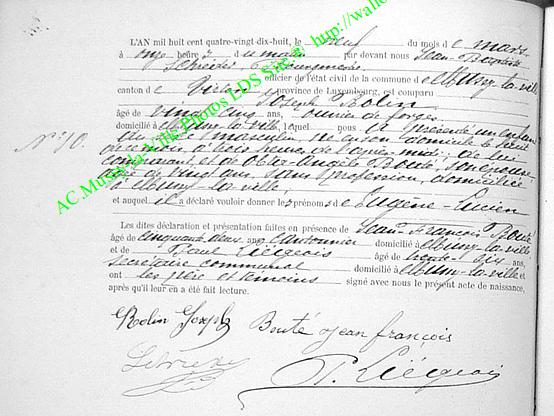 L'AN mil huit cent quatre-vingt dix-huit, le neuf du mois de mars
à onze heures du matin par devant nous Jean-Baptiste
officier de l'état civil de la commune de Mussy-la-Ville
canton de Virton province de Luxembourg, est comparu
Joseph Rolin
âgé de vingt cinq ans, ouvrier de forges
domicilié à Mussy-la-Ville, lequel nous a présenté un enfant
N° 10. du sexe masculin, né en son domicile le huit
de ce mois, à trois heures de l'après-midi, de lui
comparant, et de Angèle Bouté, son épouse,
âgée de vingt ans, sans profession, domiciliée
à Mussy-la-Ville,
et auquel il a déclaré vouloir donner les prénoms de Eugène-Lucien
Les dites déclaration et présentation faites en présence de Jean-François Bouté
âgé de cinquante deux ans, cantonnier domicilié à Mussy-la-Ville
et de Paul Liégeois âgé de trente-six ans,
secrétaire communal domicilié à Mussy-la-Ville et
ont les père et témoins signé avec nous le présent acte de naissance,
après qu'il leur en a été fait lecture.
Rolin Joseph Bouté Jean françois
P. Liégeois
AC.Mussy-la-Ville Photos LDS Site http://wallo